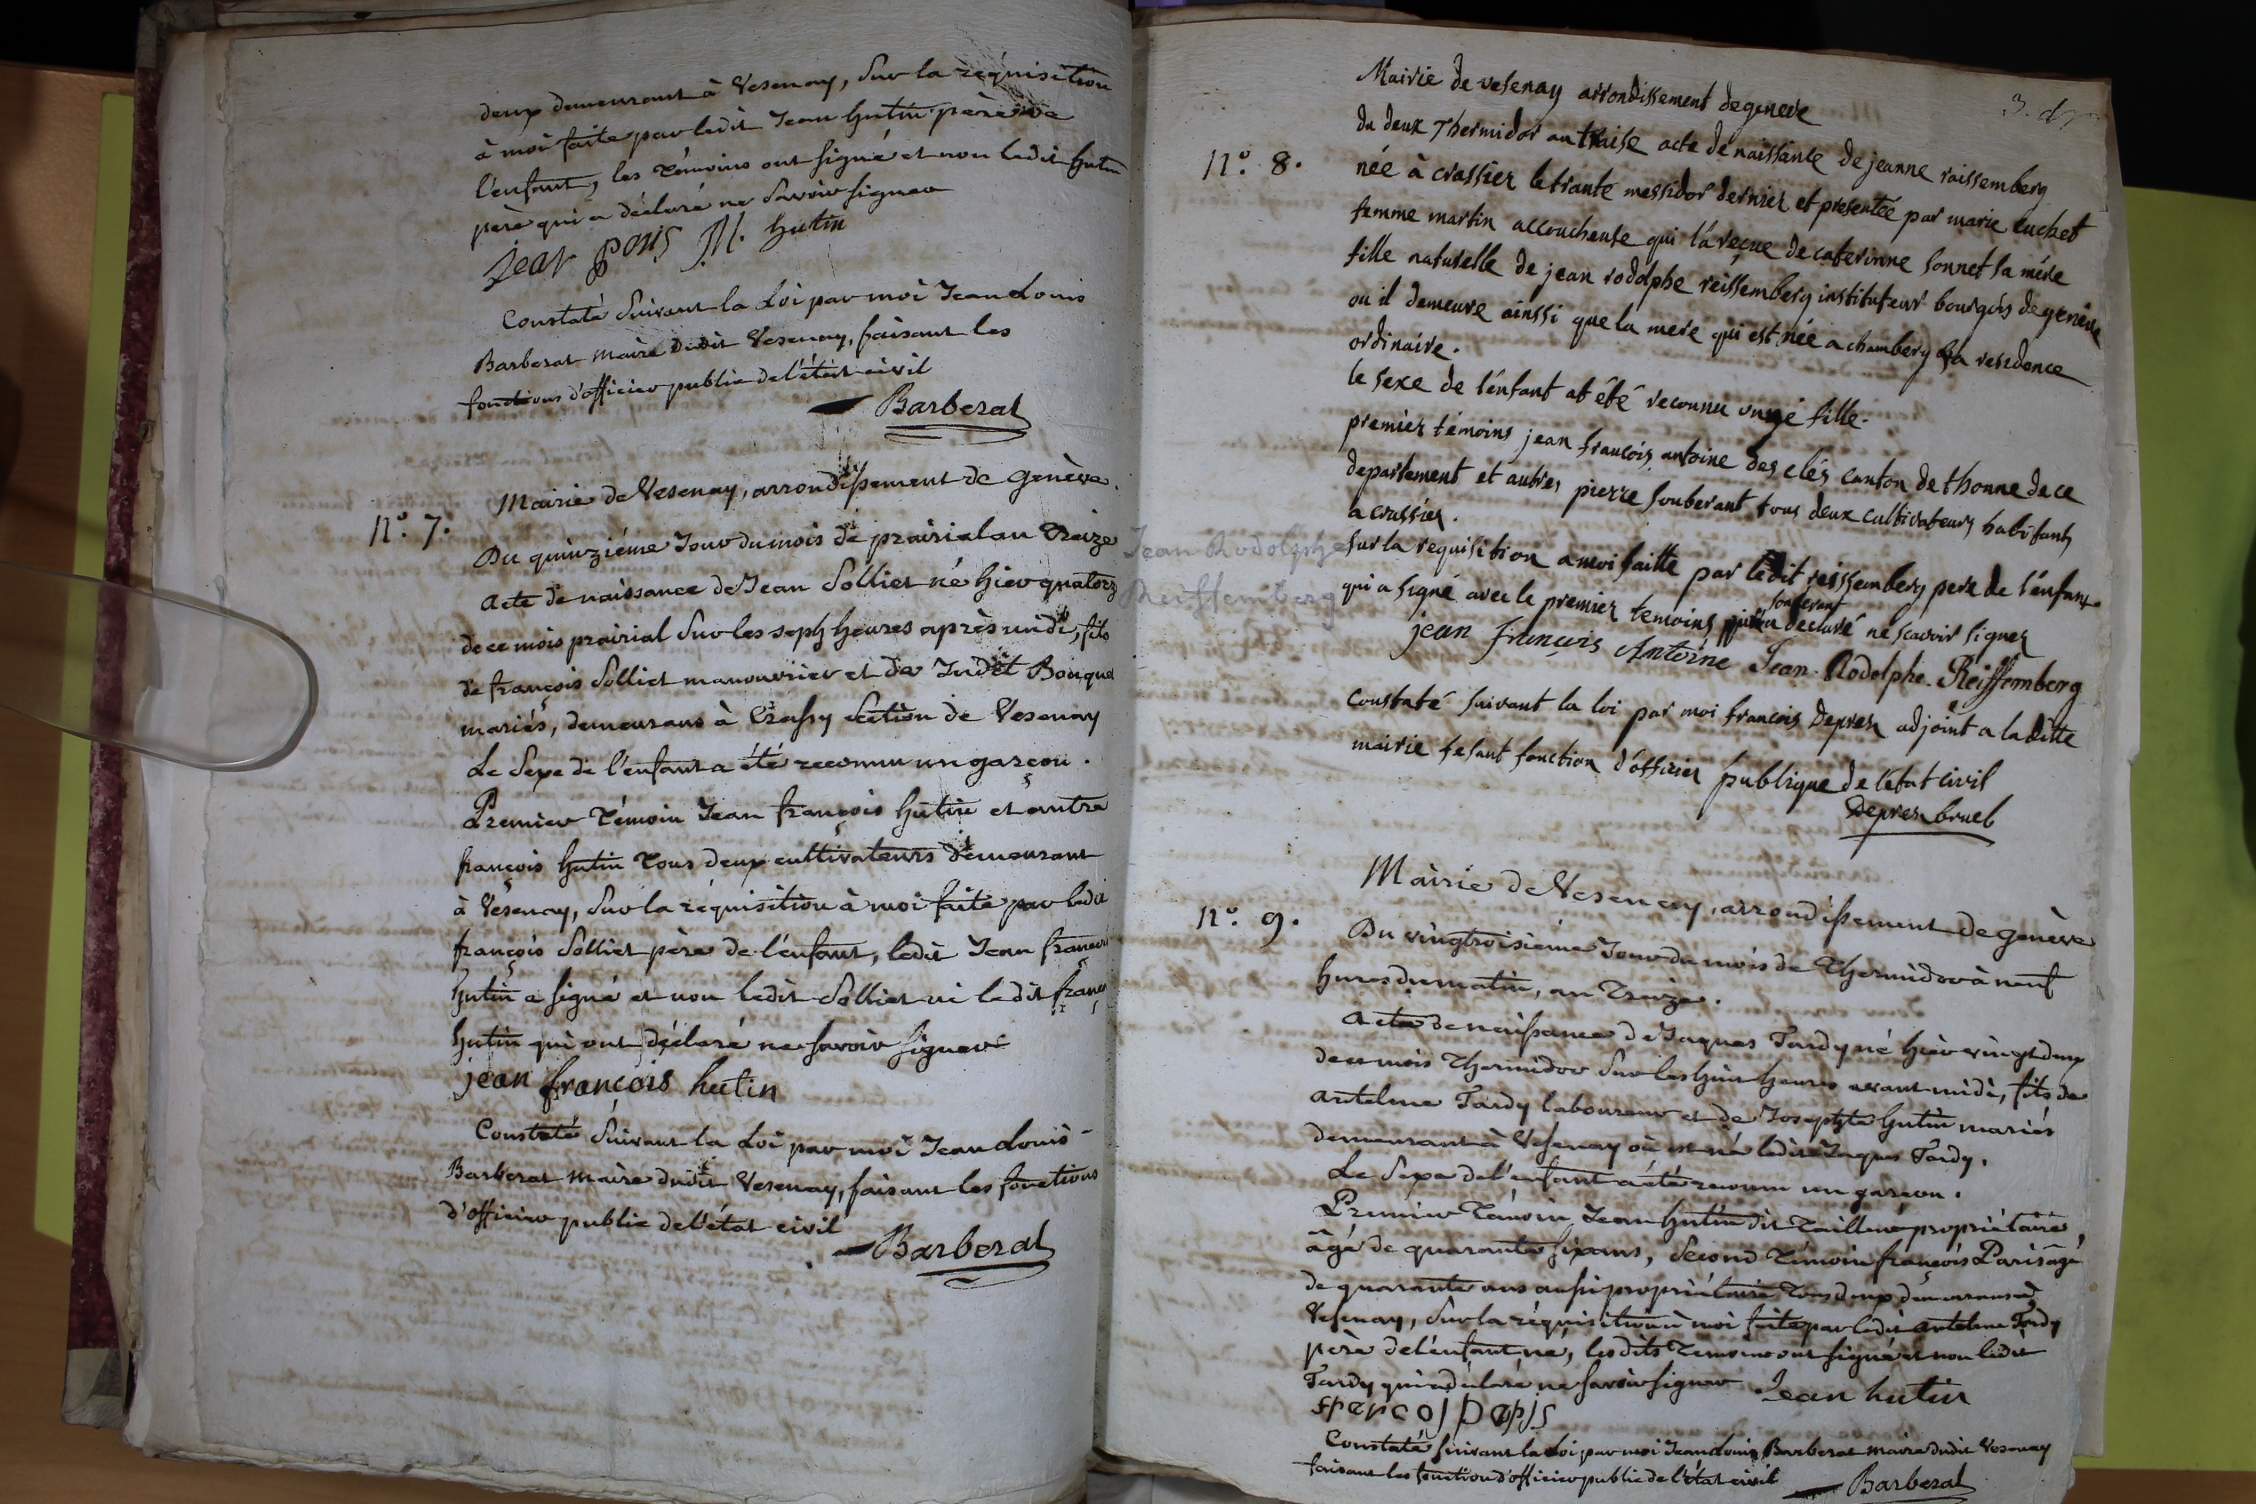 deux demeurant à Vesenay, Sur la réquisition
à moi faite par ledit Jean hutin père de
l'enfant, les Témoins ont signé et non ledit hutin
père qui a déclaré ne Savoir signer
jean paris M. hutin
Constaté Suivant la Loi par moi Jean Louis
Barberat maire dudit Vesenay, faisant les
fonctions d'officier public de l'état civil
Barberat
Mairie de Vesenay, arrondissement de Genève.
N.º 7.
Du quinziéme Jour du mois de prairial an Treize
Acte de naissance de Jean Sollier né hier quatorze
de ce mois prairial Sur les seph heures après midi, fils
de françois Solliet manouvrier et de Judit Bouquet
mariés, demeurans à Crassy Section de Vesenay
Le Sexe de l'enfant a été reconnu un garçon.
Premier Témoin Jean françois hutin et autre
françois hutin Tous deux cultivateurs demeurant
à Vesenay, Sur la réquisition à moi faite par ledit
françois Solliet père de l'enfant, ledit Jean françois
hutin a signé et non ledit Solliet ni ledit françois
hutin qui ont déclaré ne savoir signer
jean françois hutin
Constaté Suivant la Loi par moi Jean Louis
Barberat maire dudit Vesenay, faisant les fonctions
d'officier public de l'état civil
Barberat
3.
Mairie de vesenay arrondissement de geneve
N.º 8.
du deux Thermidor an traise acte de naissance de jeanne raissemberg
née à crassier le trante messidor dernier et presentée par marie cuchet
femme martin accoucheuse qui l'a reçue de caterinne sonnet sa mére
fille naturelle de jean rodolphe reissemberg instituteur bourgois de genève
ou il demeure ainssi que la mere qui est née a chambery sa residence
ordinaire.
le sexe de l'enfant at été reconnu une fille.
premier témoins jean francois antoine des clés canton de thonne de ce
departement et autres pierre souberant tous deux cultivateurs habitants
a crassier.
Jean Rodolphe
Reiffemberg
sur la requisition a moi faitte par ledit reissemberg pere de l'enfant
souberant
qui a signé avec le premier temoins a declaré ne scavoir signer
jean françois Antoine Jean Rodolphe Reiffemberg
constaté suivant la loi par moi francois Deprez adjoint a la ditte
mairie fesant fonction d'officier publique de l'etat civil
Deprez bruel
Mairie de Vesenay, arrondissement de genève
N.º 9.
Du vingtroisiéme Jour du mois de Thermidor à neuf
hures du matin, an Treize.
Acte de naissance de Jaques Tardy né hier vingt deux
de ce mois Thermidor Sur les huit heures avant midi, fils de
antelme Tardy laboureur et de Josephte hutin mariés
demeurant à Vesenay où est né ledit Jaques Tardy.
Le Sexe de l'enfant a été reconnu un garçon.
Premier Témoin Jean hutin dit Tailleur propriétaire,
âgé de quarante six ans, Second Témoin françois Paris âgé
de quarante ans aussi propriétaire Tous deux demeurans à
Vesenay, Sur la réquisition à moi faite par ledit antelme Tardy
père de l'enfant né, lesdits Temoins ont signé et non ledit
Tardy qui a déclaré ne savoir signer Jean hutin
frarcoj parjs
Constaté suivant la Loi par moi Jean Louis Barberat maire dudit Vesenay
faisant les fonction d'officier public de l'état civil Barberat